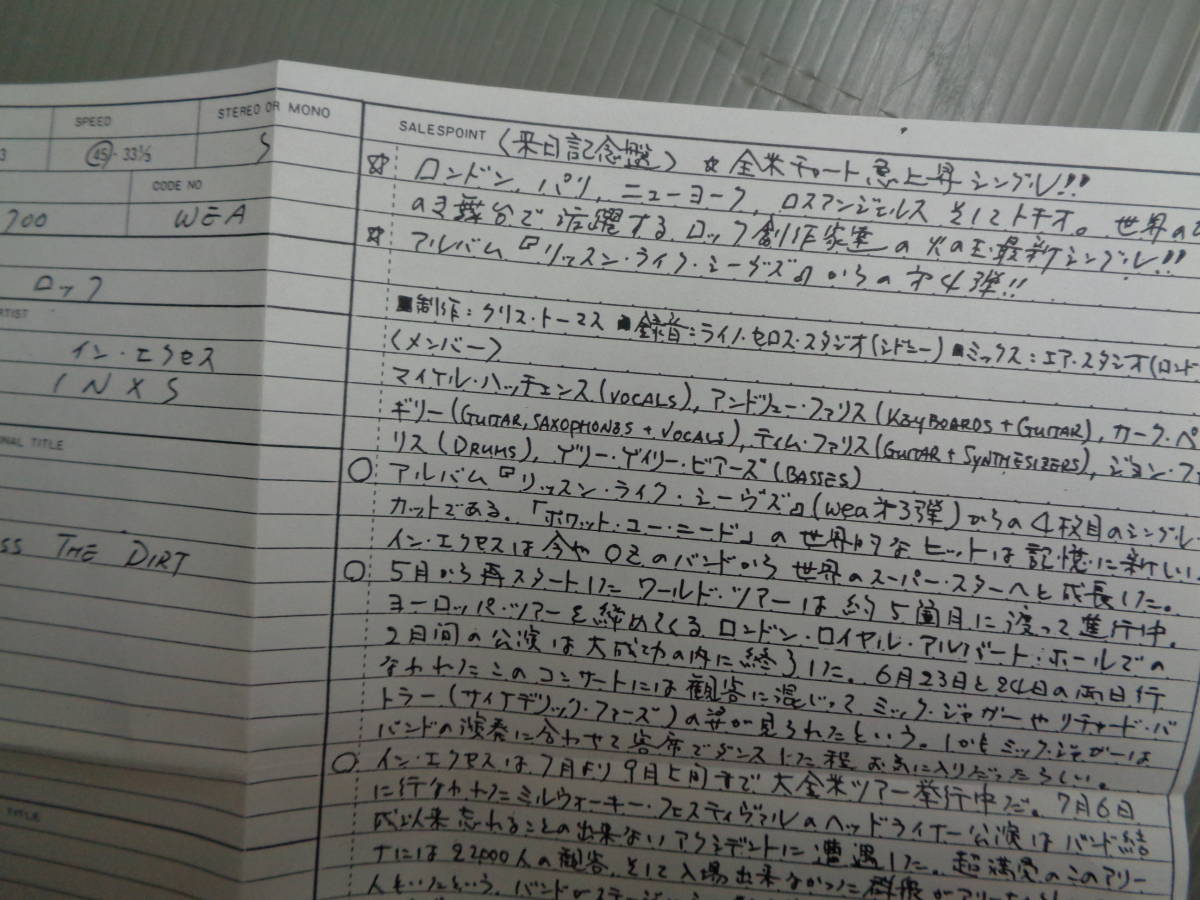 SPEED
STEREO OR MONO
45 · 33⅓
S
CODE NO
700
WEA
ロック
ARTIST
イン・エクセス
INXS
NAL TITLE
SS THE DIRT
TITLE
SALESPOINT 〈来日記念盤〉 ☆全米チャート急上昇シングル!!
☆ ロンドン、パリ、ニューヨーク、ロスアンジェルス そしてトキオ。世界の
の支舞台で活躍するロック創作家達の 最新シングル!!
☆ アルバム『リッスン・ライク・シーヴズ』からの才4弾!!
■制作:クリス・トーマス ■録音:ライノ・セロス・スタジオ(シドニー) ■ミックス:エア・スタジオ(ロンド
〈メンバー〉
マイケル・ハッチェンス(VOCALS), アンドリュー・ファリス(KEYBOARDS + GUITAR), カーク・ペ
ギリー(GUITAR, SAXOPHONES + VOCALS), ティム・ファリス(GUITAR + SYNTHESIZERS), ジョン・ファ
リス(DRUMS), ゲリー・ゲイリー・ビアーズ(BASSES)
○ アルバム『リッスン・ライク・シーヴズ』(wea才3弾)からの4枚目のシングル・
カットである。「ホワット・ユー・ニード」の世界的なヒットは記憶に新しい。
イン・エクセスは今やOZのバンドから世界のスーパー・スターへと成長した。
○ 5月から再スタートした ワールド・ツアーは約5箇月に渡って進行中。
ヨーロッパ・ツアーを締めくくるロンドン・ロイヤル・アルバート・ホールでの
2日間の公演は大成功の内に終了した。6月23日と24日の両日行
なわれたこのコンサートには観客に混じって ミック・ジャガーやリチャード・バ
トラー(サイケデリック・ファーズ)の姿が見られたという。しかもミック・ジャガーは
バンドの演奏に合わせて客席でダンスした程 お気に入りだったらしい。
○ イン・エクセスは7月より9月上旬まで大全米ツアー挙行中だ。7月6日
に行なわれたミルウォーキー・フェスティヴァルのヘッドライナー公演はバンド結
成以来忘れることの出来ないアクシデントに遭遇した。超満員のこのアリー
ナには22000人の観客、そして入場出来なかった群衆が
人もいたという。バンドが